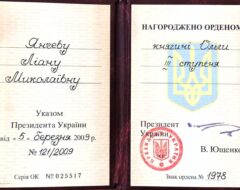 Янгеву
Ліану
Миколаївну
Указом
Президента України
від «5» березня 2009 р.
№ 121/2009
Серія ОК № 025517
НАГОРОДЖЕНО ОРДЕНОМ
княгині Ольги
III ступеня
Президент
України
В. Ющенко
Знак ордена № 1978